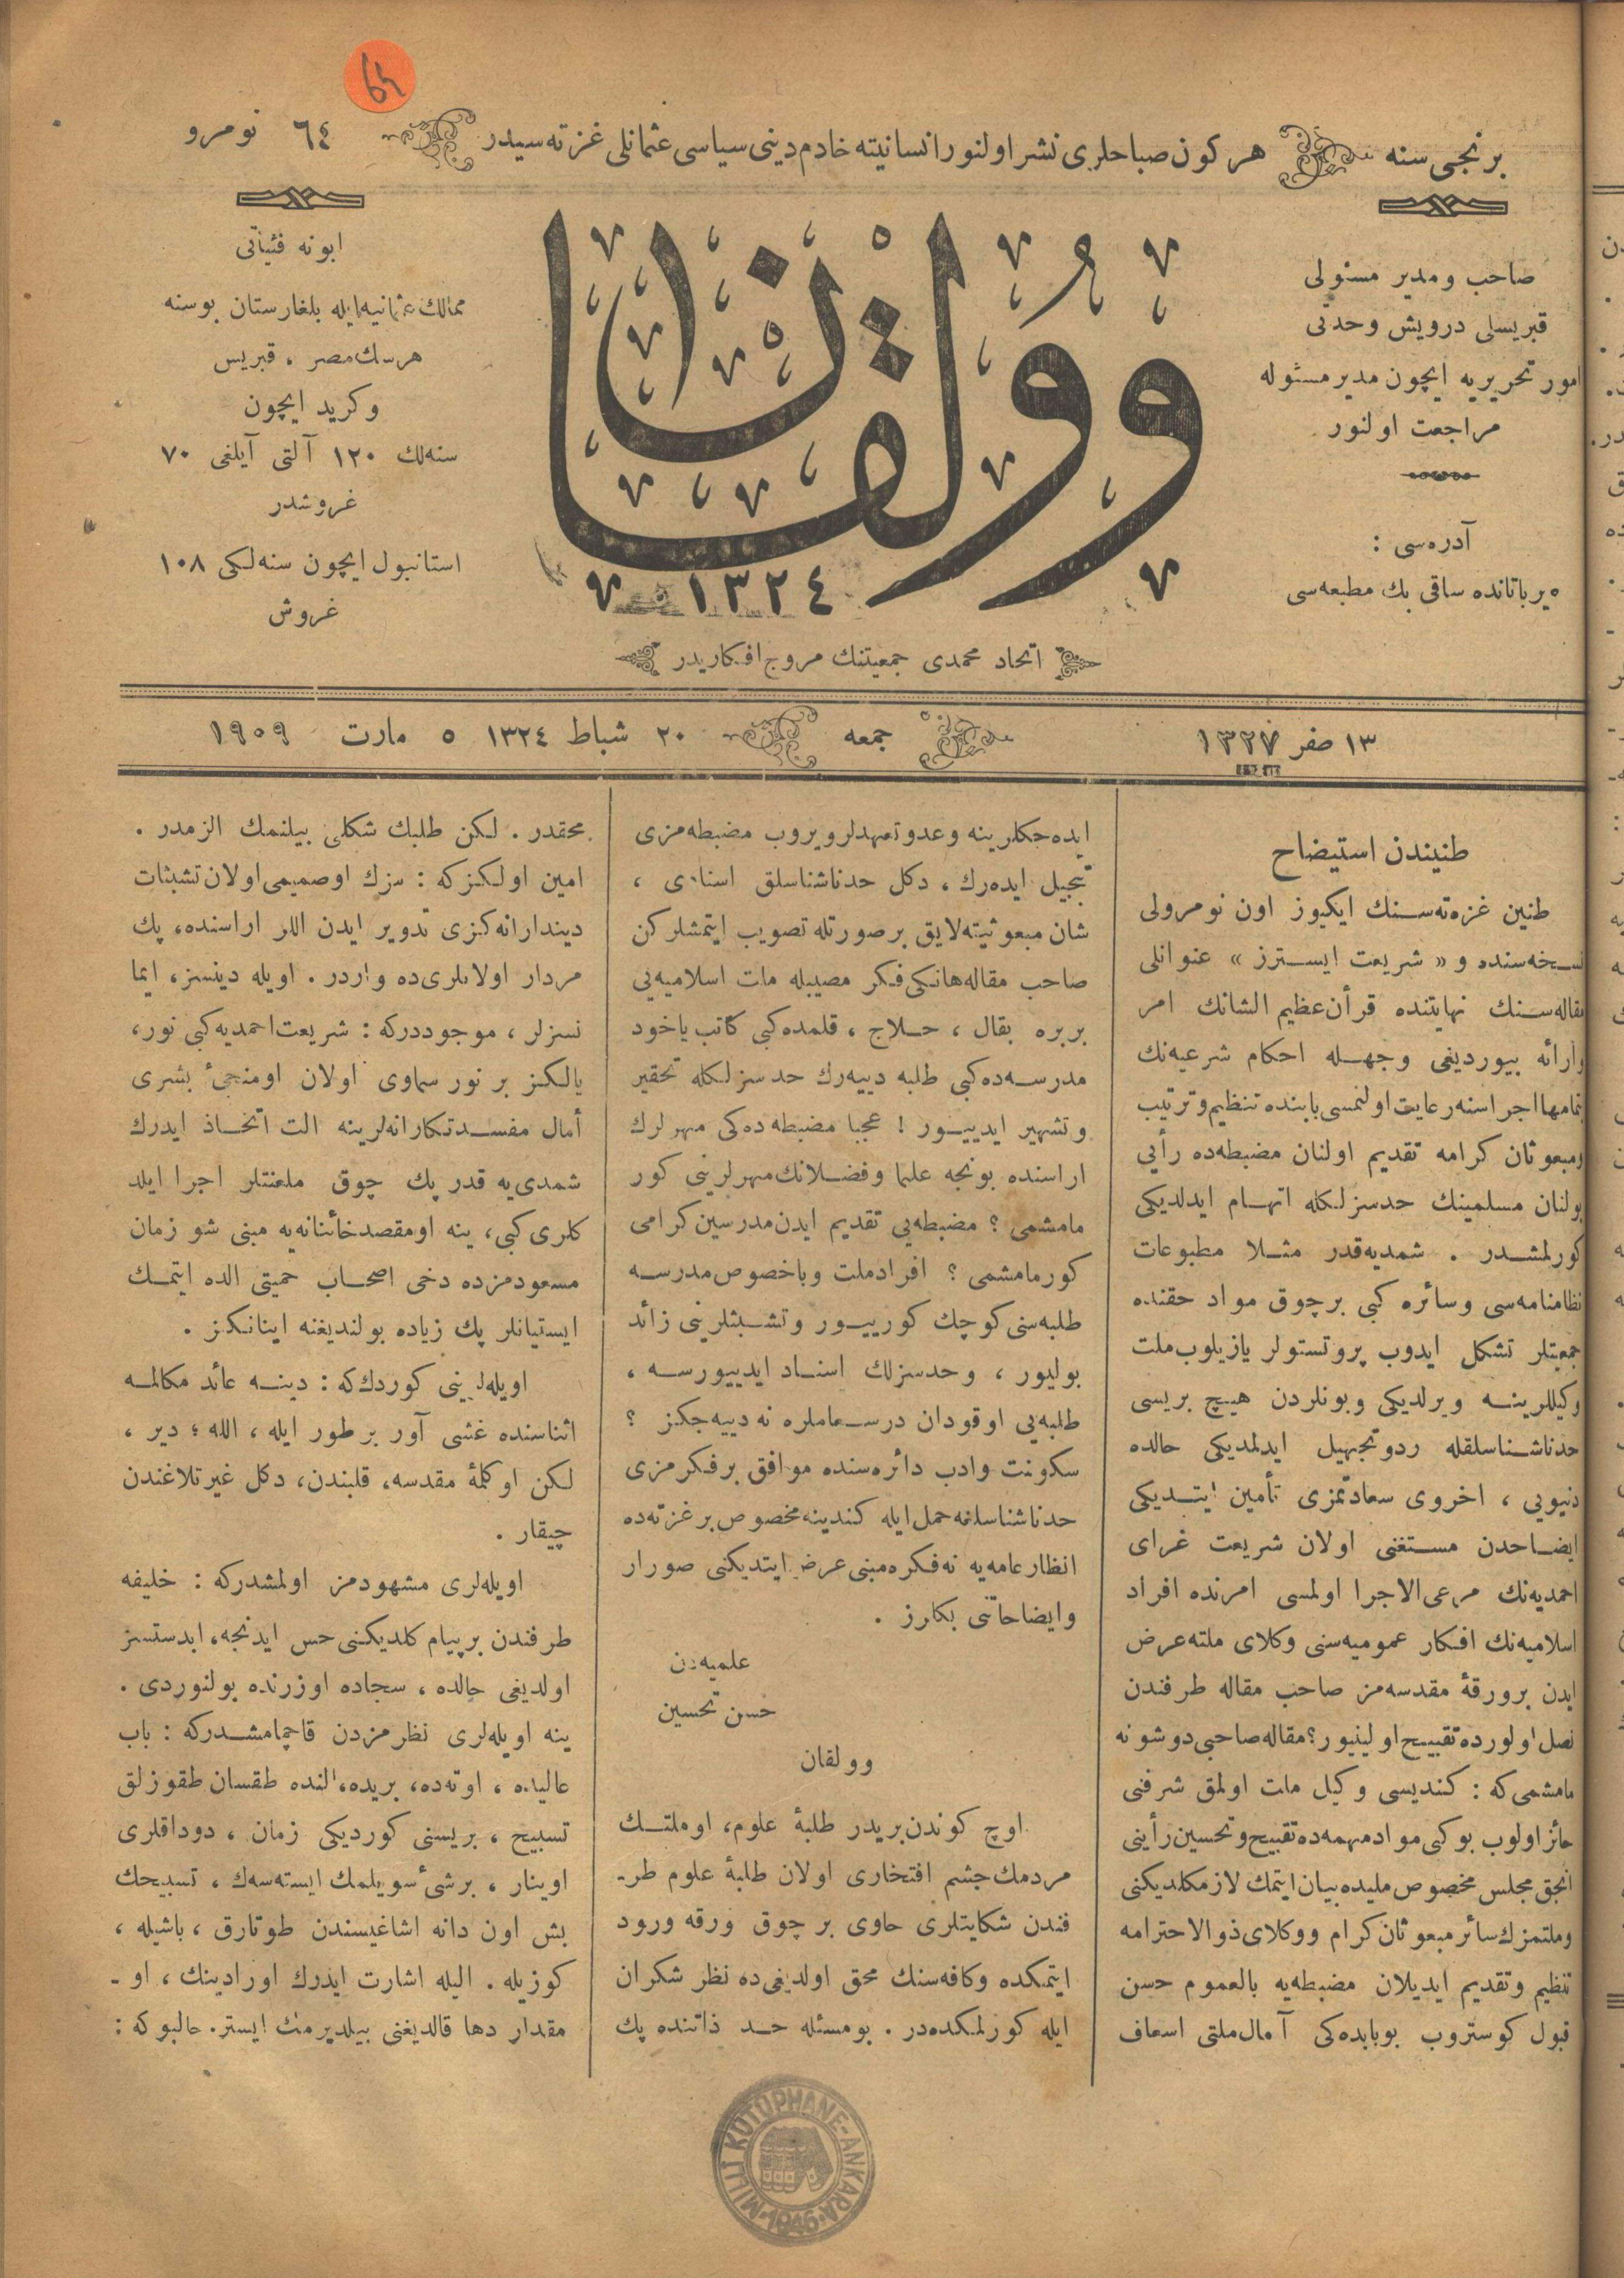 برنجی سنه
هر كون صباحلری نشر اولنور انسانیته خادم دینی سیاسی عثمانلی غزته سیدر
نومرو ٦٤
64
صاحب و مدیر مسئولی
قبریسلی درویش وحدتی
امور تحریریه ایچون مدیر مسئوله
مراجعت اولنور
آدره‌سی :
یرباتانده ساقی بك مطبعه‌سی
وولقان
١٣٢٤
اتحاد محمدی جمعیتنك مروج افكاریدر
ابونه فئیاتی
ممالك عثمانیه ایله بلغارستان بوسنه
هرسك مصر ، قبریس
وكرید ایچون
سنه‌لك ١٢٠ آلتی آیلغی ٧٠
غروشدر
استانبول ایچون سنه‌لكی ١٠٨
غروش
١٣ صفر ١٣٢٧
جمعه
٢٠ شباط ١٣٢٤ ٥ مارت ١٩٠٩
طنیندن استیضاح
طنین غزه‌ته‌سنك ایكیوز اون نومرولی
نسخه‌سنده و « شریعت ایسترز » عنوانلی
مقاله‌سنك نهایتنده قرأن عظیم الشانك امر
وارائه بیوردیغی وجهله احكام شرعیه‌نك
تمامها اجراسنه رعایت اولنمسی بابنده تنظیم و ترتیب
ومبعوثان كرامه تقدیم اولنان مضبطه‌ده رأیی
بولنان مسلمینك حدسزلكله اتهام ایدلدیكی
كورلمشدر . شمدیه‌قدر مثلا مطبوعات
نظامنامه‌سی وسائره كبی برچوق مواد حقنده
جمعیتلر تشكل ایدوب پروتستولر یازیلوب ملت
وكیللرینه ویرلدیكی وبونلردن هیچ بریسی
حدناشناسلقله ردوتجهیل ایدلمدیكی حالده
دنیویی ، اخروی سعادتمزی تأمین ایتدیكی
ایضاحدن مستغنی اولان شریعت غرای
احمدیه‌نك مرعی الاجرا اولمسی امرنده افراد
اسلامیه‌نك افكار عمومیه‌سنی وكلای ملته عرض
ایدن برورقۀ مقدسه‌مز صاحب مقاله طرفندن
نصل اولورده تقبیح اولینیور؟ مقاله صاحبی دوشونه
مامشمی كه : كندیسی وكیل ملت اولمق شرفنی
حائز اولوب بوكبی مواد مهمه‌ده تقبیح و تحسین رأینی
انجق مجلس مخصوص ملیده بیان ایتمك لازمكلدیكنی
وملتمزك سائر مبعوثان كرام ووكلای ذوالاحترامه
تنظیم وتقدیم ایدیلان مضبطه‌یه بالعموم حسن
قبول كوستروب بوبابده‌كی آمال ملتی اسعاف
ایده‌جكلرینه وعدوتعهدلر ویروب مضبطه‌مزی
تبجیل ایده‌رك ، دكل حدناشناسلق اسنادی ،
شان مبعوثیته لایق برصورتله تصویب ایتمشلركن
صاحب مقاله هانكی فكر مصیبله ملت اسلامیه‌یی
بربره بقال ، حلاج ، قلمده‌كبی كاتب یاخود
مدرسه‌ده‌كبی طلبه دییه‌رك حدسزلكله تحقیر
وتشهیر ایدییور ! عجبا مضبطه‌ده‌كی مهرلرك
اراسنده بونجه علما وفضلانك مهرلرینی كور
مامشمی ؟ مضبطه‌یی تقدیم ایدن مدرسین كرامی
كورمامشمی ؟ افراد ملت وباخصوص مدرسه
طلبه‌سنی كوچك كورییور وتشبثلرینی زائد
بولیور ، وحدسزلك اسناد ایدییورسه ،
طلبه‌یی اوقودان درسعاملره نه دییه‌جكز ؟
سكونت وادب دائره‌سنده موافق برفكرمزی
حدناشناسلغه حمل ایله كندینه مخصوص برغزته‌ده
انظار عامه‌یه نه‌فكره مبنی عرض ایتدیكنی صورار
وایضاحاتنی بكلرز .
علمیه‌دن
حسن تحسین
وولقان
اوچ كوندن‌بریدر طلبۀ علوم، اوملتك
مردمك جشم افتخاری اولان طلبۀ علوم طر-
فندن شكایتلری حاوی بر چوق ورقه ورود
ایتمكده وكافه‌سنك محق اولدیغی‌ده نظر شكران
ایله كورلمكده‌در . بومسئله حد ذاتنده پك
محقدر . لكن طلبك شكلی بیلنمك الزمدر .
امین اولكزكه : سزك اوصمیمی اولان تشبثات
دیندارانه‌كزی تدویر ایدن اللر اراسنده، پك
مردار اولانلری‌ده واردر . اویله دینسز، ایما
نسزلر ، موجوددركه : شریعت احمدیه‌كبی نور،
یالكز بر نور سماوی اولان اومنجیٔ بشری
أمال مفسدتكارانه‌لرینه الت اتخاذ ایدرك
شمدی‌یه قدر پك چوق ملعنتلر اجرا ایلد
كلری كبی، ینه اومقصد خائنانه‌یه مبنی شو زمان
مسعودمزده دخی اصحاب حمیتی الده ایتمك
ایستیانلر پك زیاده بولندیغنه اینانكز .
اویله‌لرینی كوردك‌كه : دینه عائد مكالمه
اثناسنده غشی آور برطور ایله ، الله ؛ دیر ،
لكن اوكلمۀ مقدسه، قلبندن، دكل غیرتلاغندن
چیقار .
اویله‌لری مشهودمز اولمشدركه : خلیفه
طرفندن برپیام كلدیكنی حس ایدنجه، ابدستسز
اولدیغی حالده ، سجاده اوزرنده بولنوردی .
ینه اویله‌لری نظرمزدن قاچمامشدركه : باب
عالیده ، اوته‌ده، بریده، النده طقسان طقوزلق
تسبیح ، بریسنی كوردیكی زمان ، دوداقلری
اوینار ، برشیٔ سویلمك ایسته‌سه‌ك ، تسبیحك
بش اون دانه اشاغیسندن طوتارق ، باشیله ،
كوزیله . الیله اشارت ایدرك اورادینك ، او -
مقدار دها قالدیغنی بیلدیرمك ایستر. حالبوكه :
MİLLÎ KÜTÜPHANE-ANKARA
1946